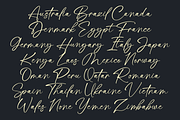 Australia Brazil Canada
Denmark Egypt France
Germany Hungary Italy Japan
Kenya Laos Mexico Norway
Oman Peru Qatar Romania
Spain Thailan Ukraine Vietnam
Wales None Yemen Zimbabwe